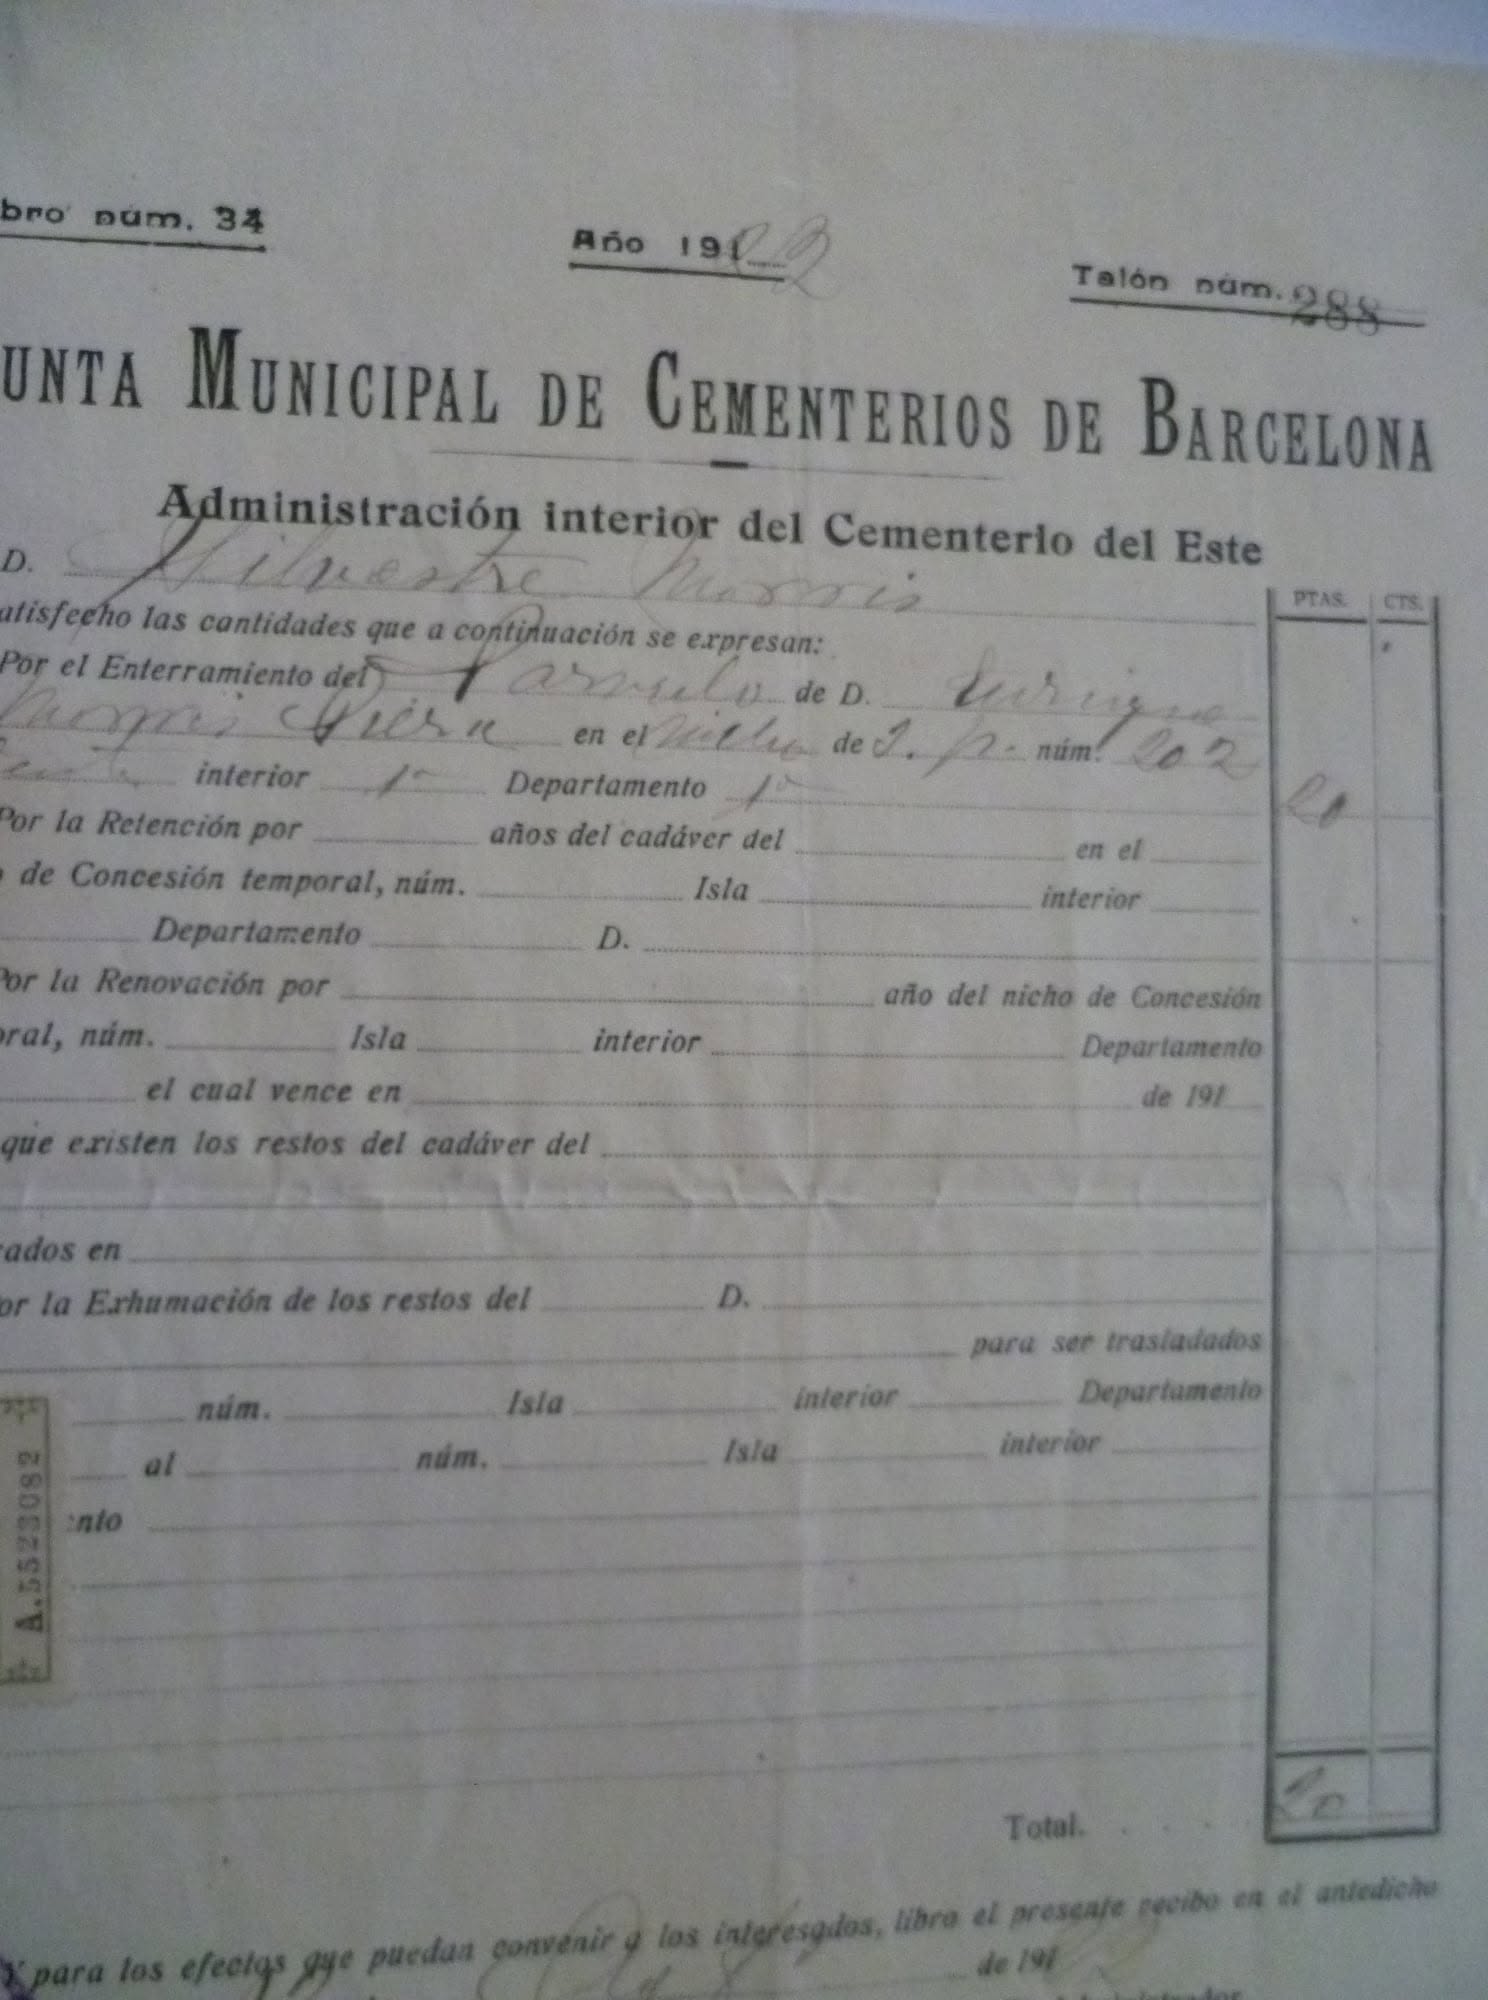 bro núm. 34
Año 1912
Talón núm. 288
UNTA MUNICIPAL DE CEMENTERIOS DE BARCELONA
Administración interior del Cementerio del Este
D. Silvestre Morris
PTAS. CTS.
atisfecho las cantidades que a continuación se expresan:
Por el Enterramiento del Parvulo de D. Enrique
Morris Riera en el nicho de 2. p. núm. 202
interior 1ª Departamento 1º 20
Por la Retención por años del cadáver del en el
o de Concesión temporal, núm. Isla interior
Departamento D.
Por la Renovación por año del nicho de Concesión
oral, núm. Isla interior Departamento
el cual vence en de 191
que existen los restos del cadáver del
cados en
or la Exhumación de los restos del D.
para ser trasladados
núm. Isla interior Departamento
al núm. Isla interior
ento
A.5523082
Total. . . . 20
Y para los efectos que puedan convenir a los interesados, libro el presente recibo en el antedicho
de 191